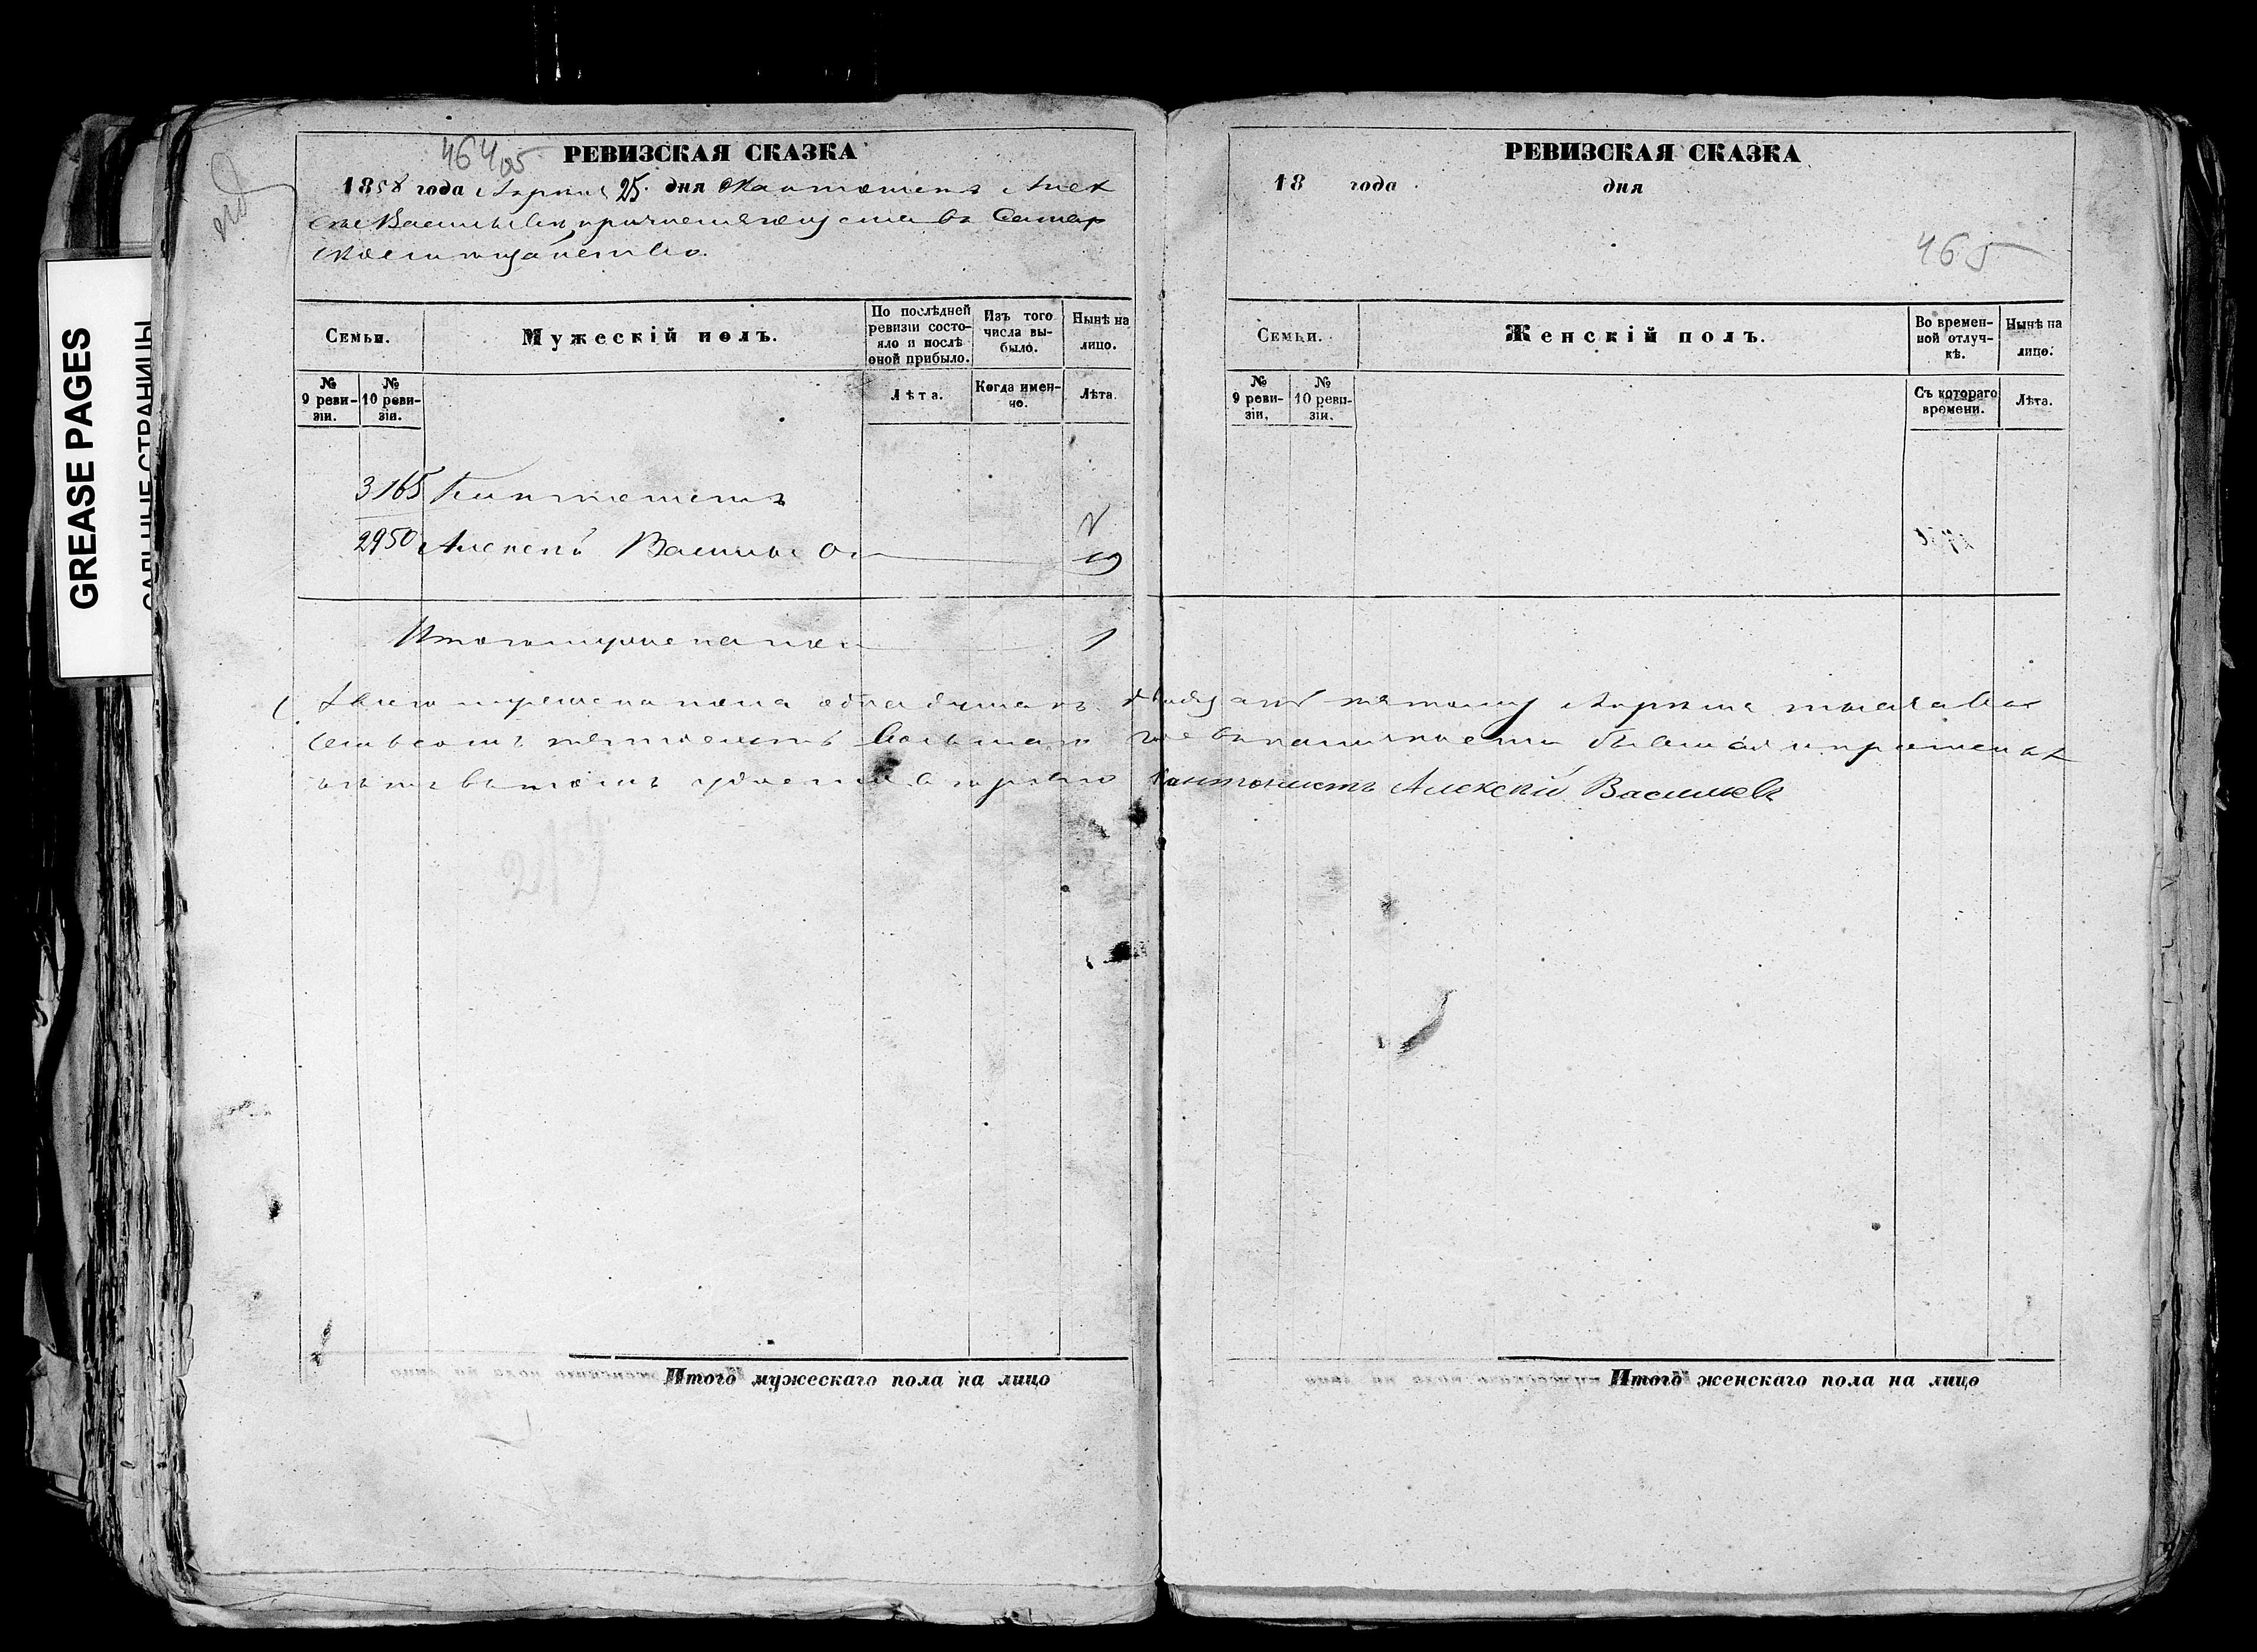 GREASE PAGES
САЛЬНЫЕ СТРАНИЦЫ
464
РЕВИЗСКАЯ СКАЗКА
1858 года Апреля 25. дня Кантониста Алек
сея Васильева, причисляющуся въ Самар
ское мещанство.
Семьи.
Мужескій полъ.
По послѣдней ревизіи состояло и послѣ оной прибыло.
Изъ того числа выбыло.
Нынѣ на лицо.
№ 9 ревизіи.
№ 10 ревизіи.
Лѣта.
Когда именно.
Лѣта.
3165 Кантонистъ
2950 Алексѣй Васильевъ 19
Итого мужеска пола 1
Всего мужеска пола одна душа къ двадцать пятому Апреля тысяча во
семьсотъ пятьдесятъ восьмаго
Кантонистъ Алексѣй Васильевъ
Итого мужескаго пола на лицо
РЕВИЗСКАЯ СКАЗКА
18 года дня
465
Семьи.
Женскій полъ.
Во временной отлучкѣ.
Нынѣ на лицо.
№ 9 ревизіи.
№ 10 ревизіи.
Съ котораго времени.
Лѣта.
Итого женскаго пола на лицо